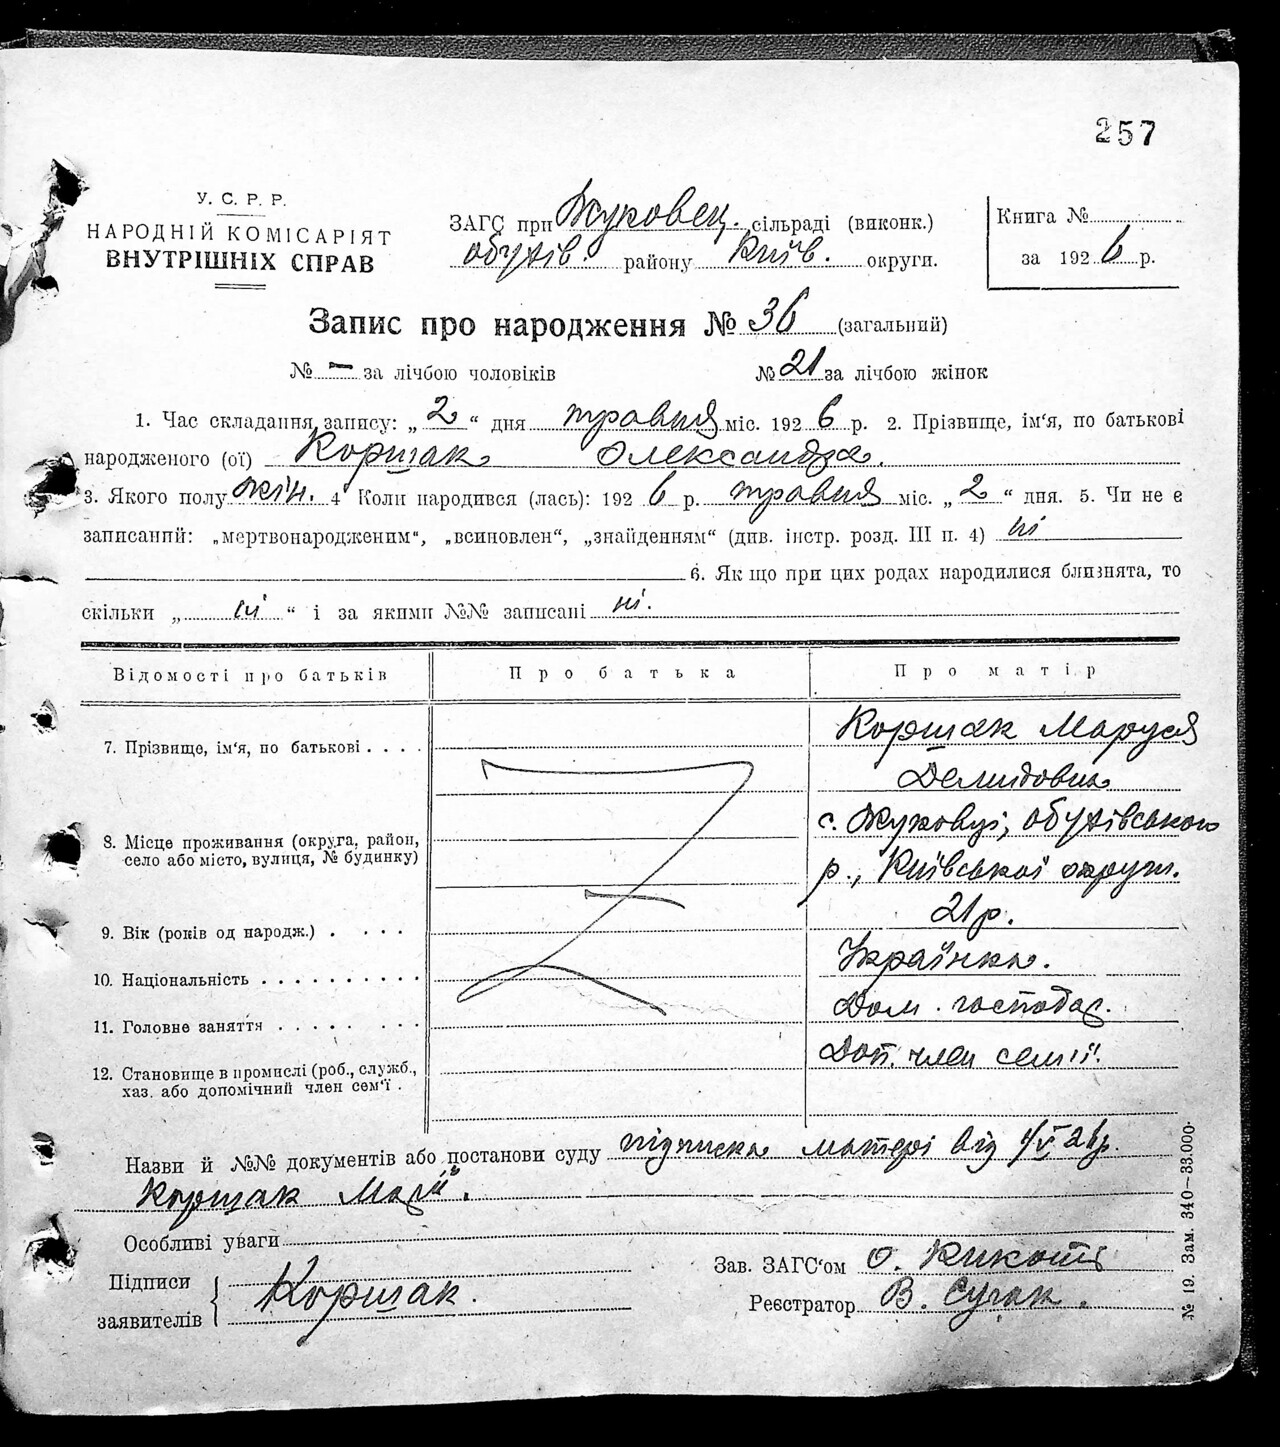 257
У. С. Р. Р.
НАРОДНІЙ КОМІСАРІЯТ
ВНУТРІШНІХ СПРАВ
ЗАГС при Жуковец. сільраді (виконк.)
обухів. району Київ. округи.
Книга №
за 1926 р.
Запис про народження № 36 (загальний)
№ – за лічбою чоловіків № 21 за лічбою жінок
1. Час складання запису: „ 2 “ дня травня міс. 1926 р. 2. Прізвище, ім‘я, по батькові
народженого (ої) Коршак Олександра.
3. Якого полу жін. 4 Коли народився (лась): 1926 р. травня міс. „ 2 “ дня. 5. Чи не є
записаний: „мертвонародженим“, „всиновлен“, „знайденням“ (див. інстр. розд. III п. 4) ні
6. Як що при цих родах народилися близнята, то
скільки „ ні “ і за якими №№ записані ні.
Відомості про батьків Про батька Про матір
7. Прізвище, ім‘я, по батькові . . . . Коршак Маруся
Демидовна
8. Місце проживання (округа, район,
село або місто, вулиця, № будинку)
с. Жуковці, обухівського
р., Київської округи.
9. Вік (років од народж.) . . . . 21 р.
10. Національність . . . . . . . . . . Українка.
11. Головне заняття . . . . . . . . Дом. господар.
12. Становище в промислі (роб., служб.,
хаз. або допомічний член сем‘ї .
Доп. член семії.
Назви й №№ документів або постанови суду підписка матері від V 26р.
Коршак Марії.
Особливі уваги
Підписи
заявителів
Коршак.
Зав. ЗАГС‘ом О. Кикоть
Реєстратор В. Сучак.
№ 19. Зам. 340—33.000·